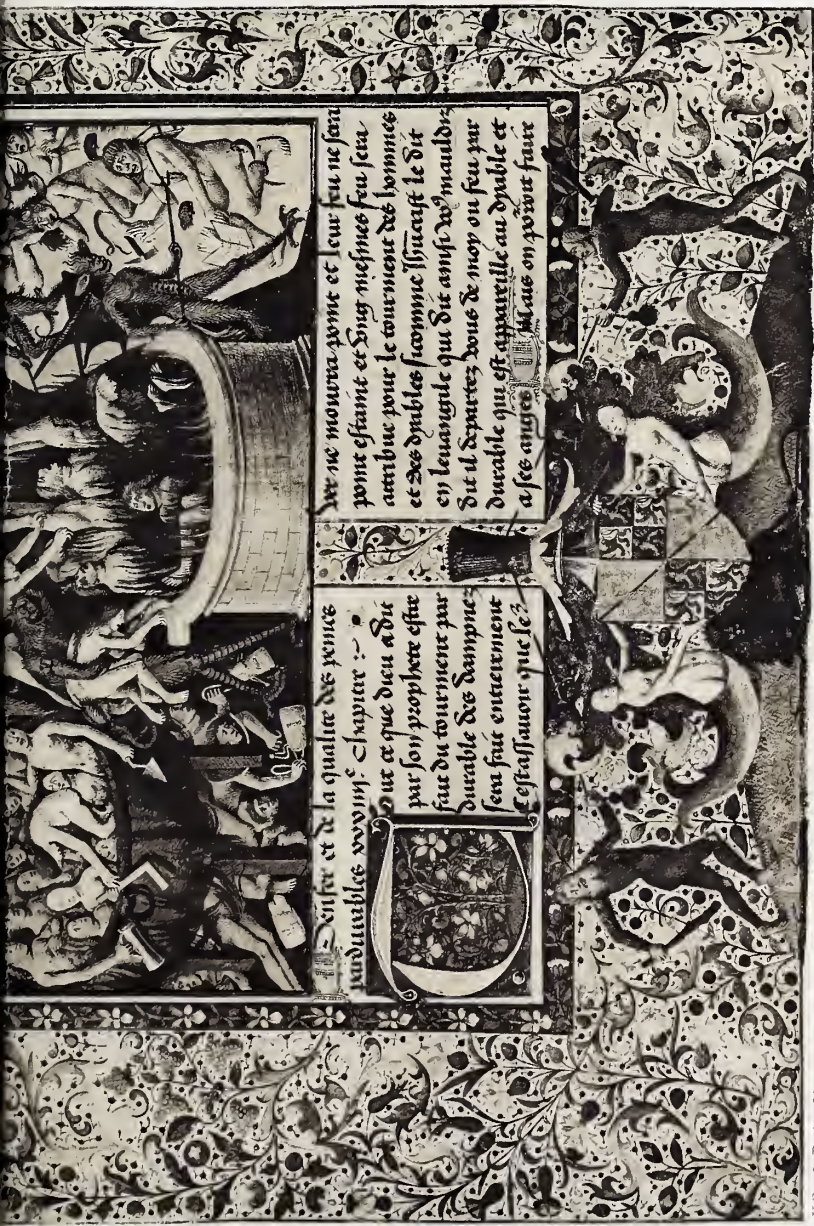 Denfer et de la qualite des peines
pardurables xxviiiᵉ chapitre :~
Tout ce que dieu a dit
par son prophete estre
fait du tourment par
durable des dampnez
sera fait entierement
Cestassavoir que lez
ver ne mourra point et leur feu ne sera
point estaint et dung mesmes feu sera
attribue pour le tourment des hommes
et des dyables sicomme ihucrist le dit
en leuangile qui dit ainsi vo⁹ mauldiz
dit il departez vous de moy ou feu par
durable que est appareille au dyable et
a ses anges Mais on porroit faire